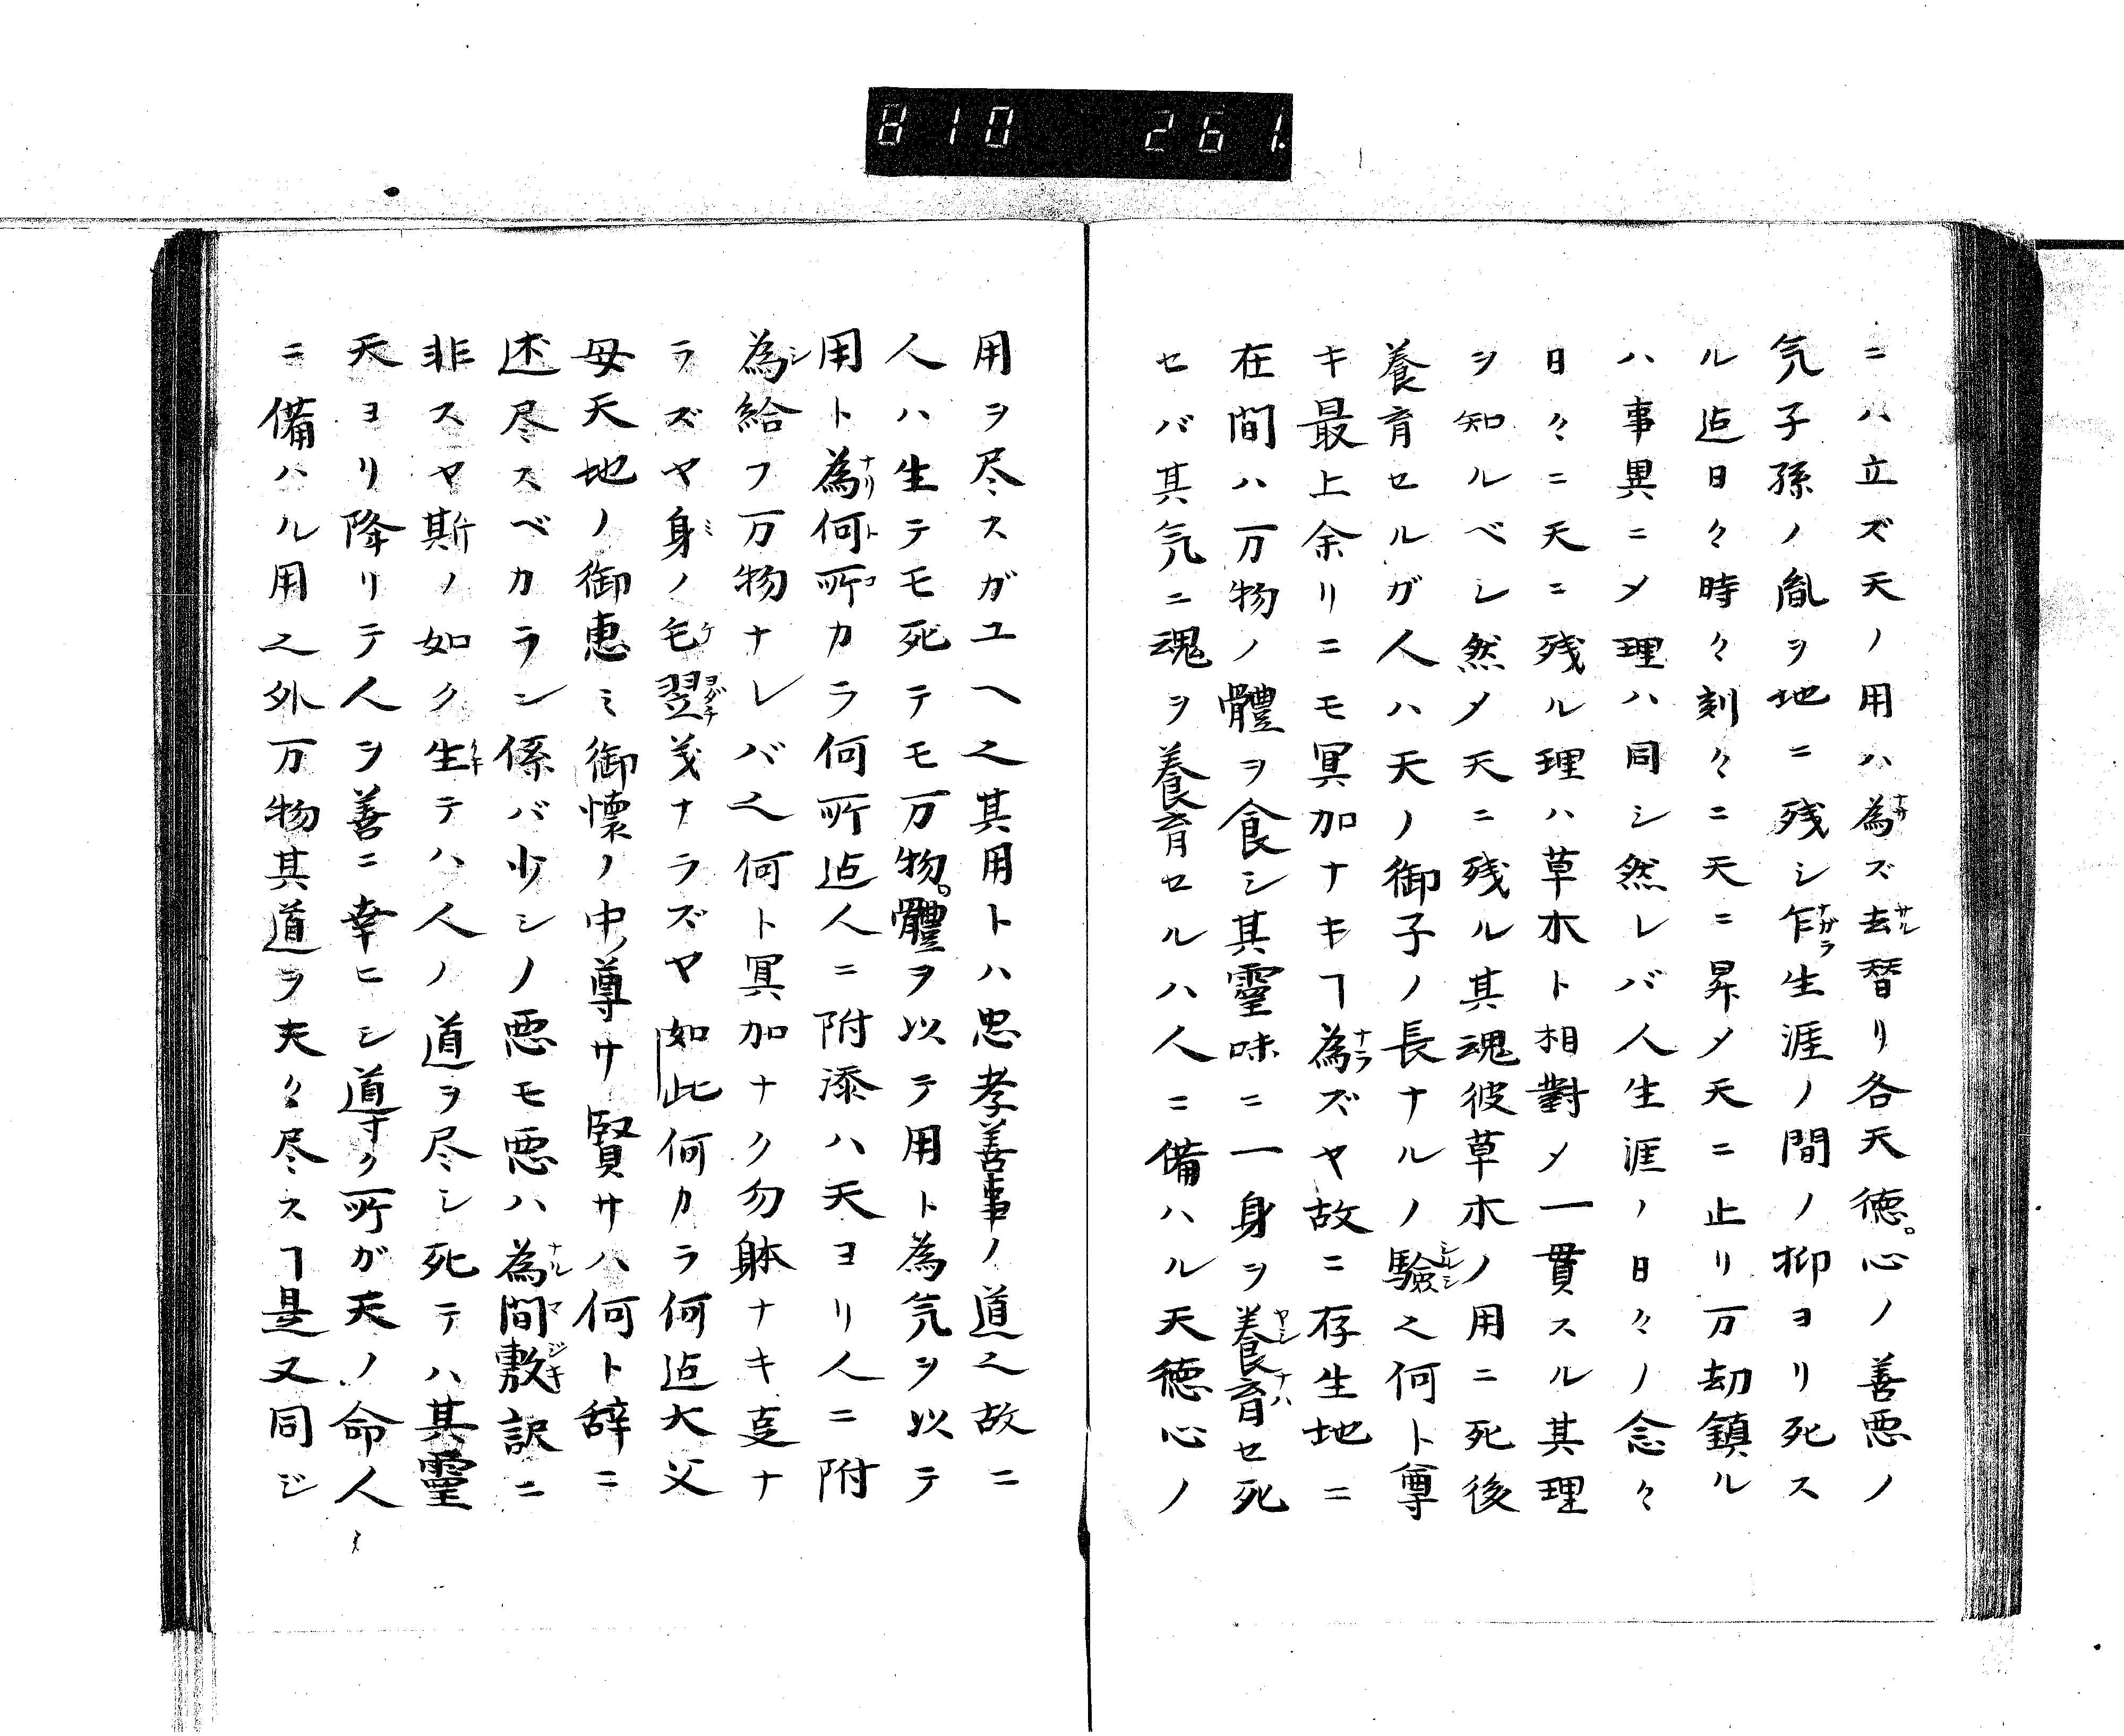 810 261.
ニハ立ズ天ノ用ハ為ズ去替リ各天徳。心ノ善悪ノ
気子孫ノ胤ヲ地ニ残シ乍生涯ノ間ノ抑ヨリ死ス
ル迠日々時々刻々ニ天ニ昇メ天ニ止リ万劫鎮ル
ハ事異ニメ理ハ同シ然レバ人生涯ノ日々ノ念々
日々ニ天ニ残ル理ハ草木ト相對メ一貫スル其理
ヲ知ルベシ然メ天ニ残ル其魂彼草木ノ用ニ死後
養育セルガ人ハ天ノ御子ノ長ナルノ驗之何ト尊
キ最上余リニモ冥加ナキヿ為ズヤ故ニ存生地ニ
在間ハ万物ノ體ヲ食シ其靈味ニ一身ヲ養育セ死
セバ其気ニ魂ヲ養育セルハ人ニ備ハル天徳心ノ
用ヲ尽スガユヘ之其用トハ忠孝善事ノ道之故ニ
人ハ生テモ死テモ万物。體ヲ以テ用ト為気ヲ以テ
用ト為何所カラ何所迠人ニ附添ハ天ヨリ人ニ附
為給フ万物ナレバ之何ト冥加ナク勿躰ナキ㕝ナ
ラズヤ身ノ毛翌茂ナラズヤ如此何カラ何迠大父
母天地ノ御恵ミ御懐ノ中ノ尊サ賢サハ何ト辞ニ
述尽スベカラン係バ少シノ悪モ悪ハ為間敷訳ニ
非スヤ斯ノ如ク生テハ人ノ道ヲ尽シ死テハ其靈
天ヨリ降リテ人ヲ善ニ幸ヒシ導ク所ガ天ノ命人
ニ備ハル用之外万物其道ヲ夫々尽スヿ是又同ジ